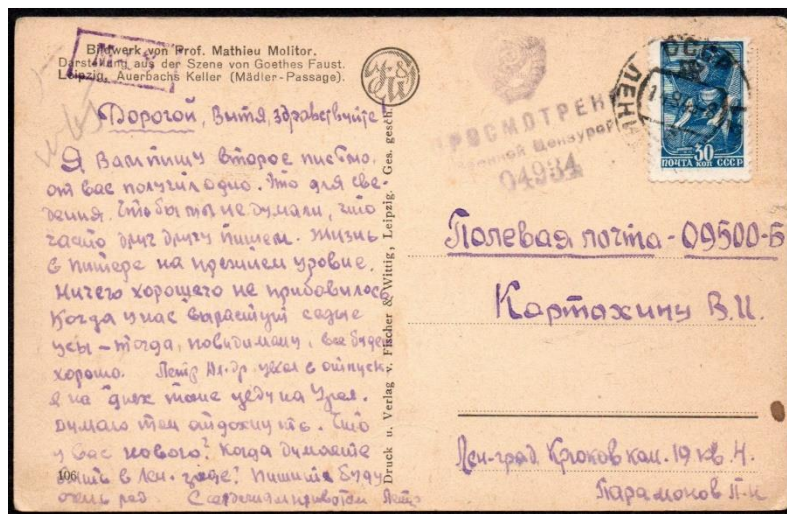 Bildwerk von Prof. Mathieu Molitor.
Darstellung aus der Szene von Goethes Faust.
Leipzig, Auerbachs Keller (Mädler-Passage).
Дорогой, Витя, здравствуйте!
Я Вам пишу второе письмо,
от вас получил одно. Это для све-
дения. Чтобы ты не думали, что
часто друг другу пишем. Жизнь
в питере на прежнем уровне.
Ничего хорошего не прибавилось.
Когда у нас вырастут седые
усы – тогда, повидимому, все будет
хорошо. Петр Ал-др. уехал в отпуск
я на днях тоже уеду на Урал.
Думаю там отдохнуть. Что
у вас нового? Когда думаете
быть в Лен-граде? Пишите буду
очень рад. С сердечным приветом Петр
106
Druck u. Verlag v. Fischer & Wittig, Leipzig. Ges. gesch.
ПРОСМОТРЕНО
Военной Цензурой
04934
ПОЧТА 30 КОП СССР
СССР
ЛЕНИН
Полевая почта - 09500-Б
Картахину В.И.
Лен-град. Крюков кан. 19 кв. 4.
Парамонов П.